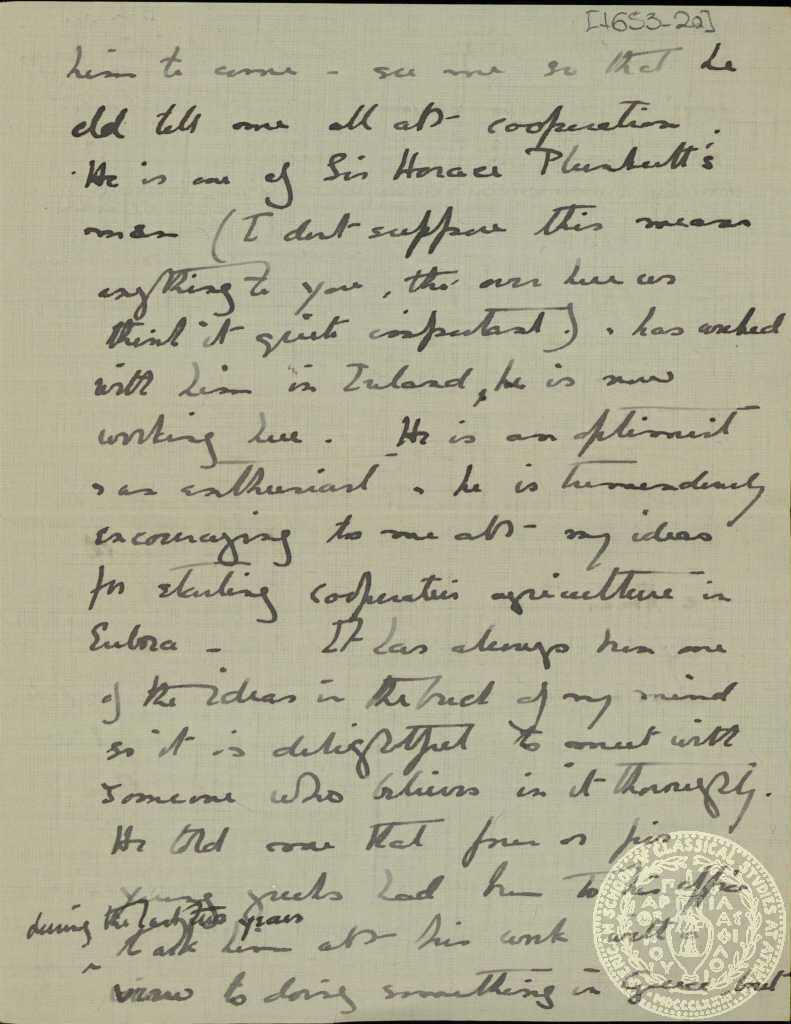 [1653-20]
him to come - see me so that he
cld tell me all abt cooperation.
He is one of Sir Horace Plunkett's
men (I dont suppose this means
anything to you, tho' over here we
think it quite important.) + has worked
with him in Ireland, he is now
working here. He is an optimist
+ an enthusiast - + he is tremendously
encouraging to me abt my ideas
for starting cooperative agriculture in
Euboea - It has always been one
of the ideas in the back of my mind
so it is delightful to meet with
someone who believes in it thoroughly.
He told me that four or five
young greeks had been to his office
during the last two years
to ask him abt his work with a
view to doing something in Greece but